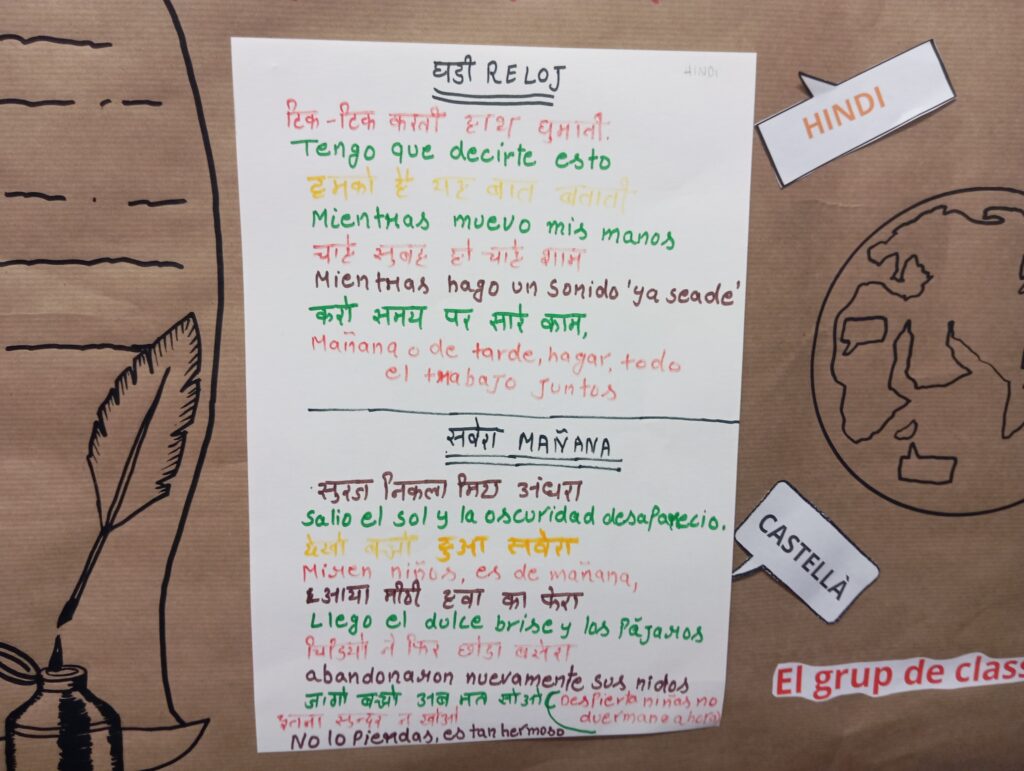 घडी RELOJ
HINDI
टिक-टिक करती हाथ घुमाती.
Tengo que decirte esto
हमको है यह बात बताती
Mientras muevo mis manos
चाहे सुबह हो चाहे शाम
Mientras hago un sonido 'ya seade'
करो समय पर सारे काम,
Mañana o de tarde, hagar, todo
el trabajo juntos
सवेरा MAÑANA
सुरज निकला अंधरा
Salio el sol y la oscuridad desaparecio.
देखो हुआ सवेरा
Miren niños, es de mañana,
आया मीठी हवा का फेरा
Llego el dulce brise y los Pájaros
ने फिर छोडा बसेरा
abandonaron nuevamente sus nidos
जागो अब मत सोओ (Despierta niñas no
duermane ahora)
इतना सुन्दर न खोओ
No lo Pierdas, es tan hermoso
HINDI
CASTELLÀ
El grup de class